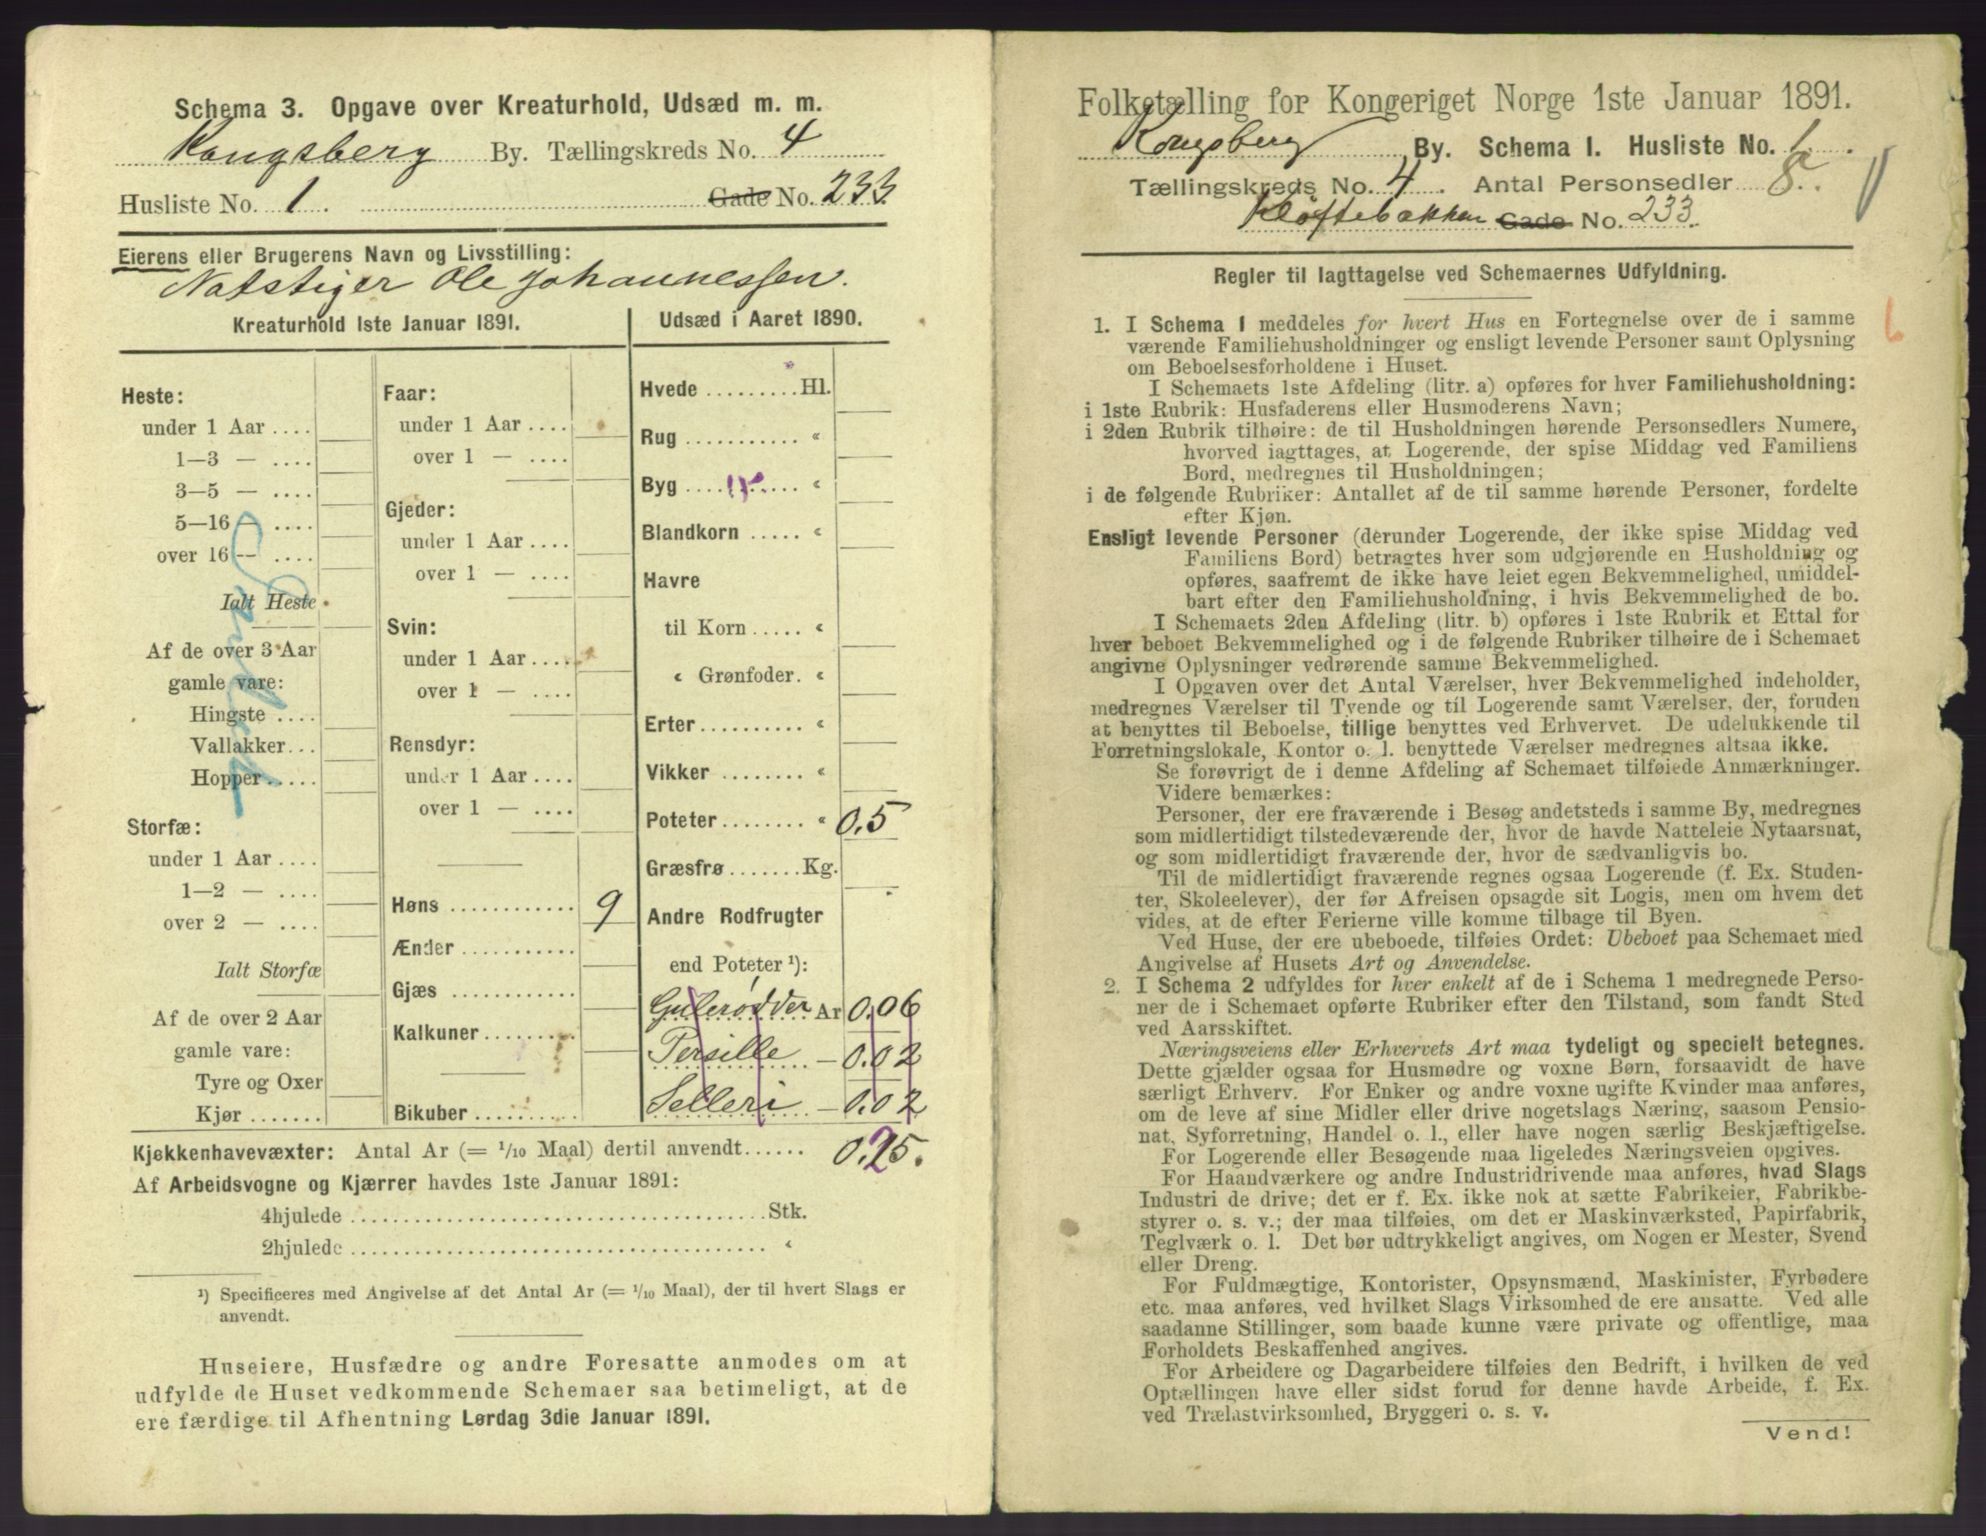 Schema 3. Opgave over Kreaturhold, Udsæd m. m.
Kongsberg By. Tællingskreds No. 4
Husliste No. 1. Gade No. 233.
Eierens eller Brugerens Navn og Livsstilling:
Natstiger Ole Johannessen.
Kreaturhold 1ste Januar 1891.
Heste:
under 1 Aar ....
1—3 — ....
3—5 — ....
5—16 — ....
over 16 — ....
Ialt Heste
Af de over 3 Aar
gamle vare:
Hingste ....
Vallakker...
Hopper.....
Storfæ:
under 1 Aar ....
1—2 — ....
over 2 — ....
Ialt Storfæ
Af de over 2 Aar
gamle vare:
Tyre og Oxer
Kjør ........
Faar:
under 1 Aar ....
over 1 — ....
Gjeder:
under 1 Aar ....
over 1 — ....
Svin:
under 1 Aar ....
over 1 — ....
Rensdyr:
under 1 Aar ....
over 1 — ....
Høns ............ 9
Ænder ...........
Gjæs ............
Kalkuner .........
Bikuber ..........
Udsæd i Aaret 1890.
Hvede .........Hl.
Rug ........... "
Byg ........... "
Blandkorn ..... "
Havre
til Korn ..... "
" Grønfoder. "
Erter.......... "
Vikker ........ "
Poteter........ " 0.5
Græsfrø .......Kg.
Andre Rodfrugter
end Poteter ¹):
Gulerødder Ar 0.06
Persille — 0.02
Selleri — 0.02
Kjøkkenhavevæxter: Antal Ar (= 1/10 Maal) dertil anvendt...... 0.25.
Af Arbeidsvogne og Kjærrer havdes 1ste Januar 1891:
4hjulede ......................................Stk.
2hjulede ...................................... "
¹) Specificeres med Angivelse af det Antal Ar (= 1/10 Maal), der til hvert Slags er
anvendt.
Huseiere, Husfædre og andre Foresatte anmodes om at
udfylde de Huset vedkommende Schemaer saa betimeligt, at de
ere færdige til Afhentning Lørdag 3die Januar 1891.
Folketælling for Kongeriget Norge 1ste Januar 1891.
Kongsberg By. Schema I. Husliste No. 1.
Tællingskreds No. 4. Antal Personsedler 8.
Kløftebakken Gade No. 233.
Regler til Iagttagelse ved Schemaernes Udfyldning.
6
1. I Schema 1 meddeles for hvert Hus en Fortegnelse over de i samme
værende Familiehusholdninger og ensligt levende Personer samt Oplysning
om Beboelsesforholdene i Huset.
I Schemaets 1ste Afdeling (litr. a) opføres for hver Familiehusholdning:
i 1ste Rubrik: Husfaderens eller Husmoderens Navn;
i 2den Rubrik tilhøire: de til Husholdningen hørende Personsedlers Numere,
hvorved iagttages, at Logerende, der spise Middag ved Familiens
Bord, medregnes til Husholdningen;
i de følgende Rubriker: Antallet af de til samme hørende Personer, fordelte
efter Kjøn.
Ensligt levende Personer (derunder Logerende, der ikke spise Middag ved
Familiens Bord) betragtes hver som udgjørende en Husholdning og
opføres, saafremt de ikke have leiet egen Bekvemmelighed, umiddel-
bart efter den Familiehusholdning, i hvis Bekvemmelighed de bo.
I Schemaets 2den Afdeling (litr. b) opføres i 1ste Rubrik et Ettal for
hver beboet Bekvemmelighed og i de følgende Rubriker tilhøire de i Schemaet
angivne Oplysninger vedrørende samme Bekvemmelighed.
I Opgaven over det Antal Værelser, hver Bekvemmelighed indeholder,
medregnes Værelser til Tyende og til Logerende samt Værelser, der, foruden
at benyttes til Beboelse, tillige benyttes ved Erhvervet. De udelukkende til
Forretningslokale, Kontor o. l. benyttede Værelser medregnes altsaa ikke.
Se forøvrigt de i denne Afdeling af Schemaet tilføiede Anmærkninger.
Videre bemærkes:
Personer, der ere fraværende i Besøg andetsteds i samme By, medregnes
som midlertidigt tilstedeværende der, hvor de havde Natteleie Nytaarsnat,
og som midlertidigt fraværende der, hvor de sædvanligvis bo.
Til de midlertidigt fraværende regnes ogsaa Logerende (f. Ex. Studen-
ter, Skoleelever), der før Afreisen opsagde sit Logis, men om hvem det
vides, at de efter Ferierne ville komme tilbage til Byen.
Ved Huse, der ere ubeboede, tilføies Ordet: Ubeboet paa Schemaet med
Angivelse af Husets Art og Anvendelse.
2. I Schema 2 udfyldes for hver enkelt af de i Schema 1 medregnede Perso-
ner de i Schemaet opførte Rubriker efter den Tilstand, som fandt Sted
ved Aarsskiftet.
Næringsveiens eller Erhvervets Art maa tydeligt og specielt betegnes.
Dette gjælder ogsaa for Husmødre og voxne Børn, forsaavidt de have
særligt Erhverv. For Enker og andre voxne ugifte Kvinder maa anføres,
om de leve af sine Midler eller drive nogetslags Næring, saasom Pensio-
nat, Syforretning, Handel o. l., eller have nogen særlig Beskjæftigelse.
For Logerende eller Besøgende maa ligeledes Næringsveien opgives.
For Haandværkere og andre Industridrivende maa anføres, hvad Slags
Industri de drive; det er f. Ex. ikke nok at sætte Fabrikeier, Fabrikbe-
styrer o. s. v.; der maa tilføies, om det er Maskinværksted, Papirfabrik,
Teglværk o. l. Det bør udtrykkeligt angives, om Nogen er Mester, Svend
eller Dreng.
For Fuldmægtige, Kontorister, Opsynsmænd, Maskinister, Fyrbødere
etc. maa anføres, ved hvilket Slags Virksomhed de ere ansatte. Ved alle
saadanne Stillinger, som baade kunne være private og offentlige, maa
Forholdets Beskaffenhed angives.
For Arbeidere og Dagarbeidere tilføies den Bedrift, i hvilken de ved
Optællingen have eller sidst forud for denne havde Arbeide, f. Ex.
ved Trælastvirksomhed, Bryggeri o. s. v.
Vend!